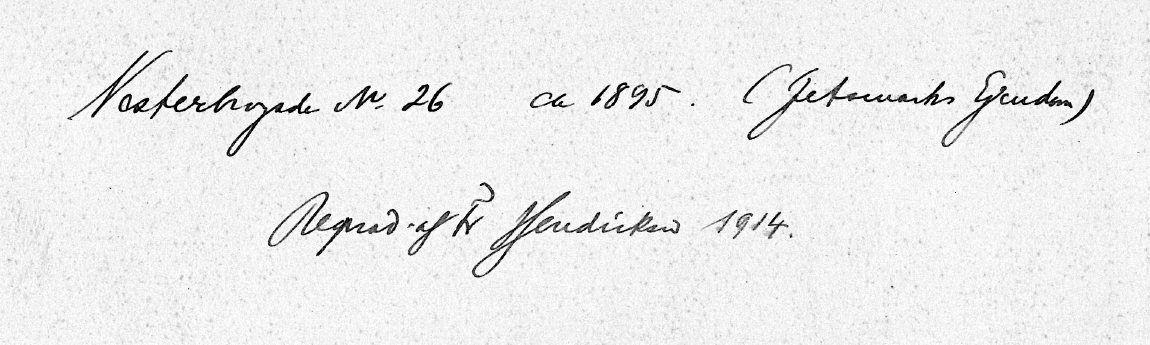 Vesterbrogade Nr. 26 ca 1895. (Jetsmarks Ejendom)
Reprod. af Fr Hendriksen 1914.